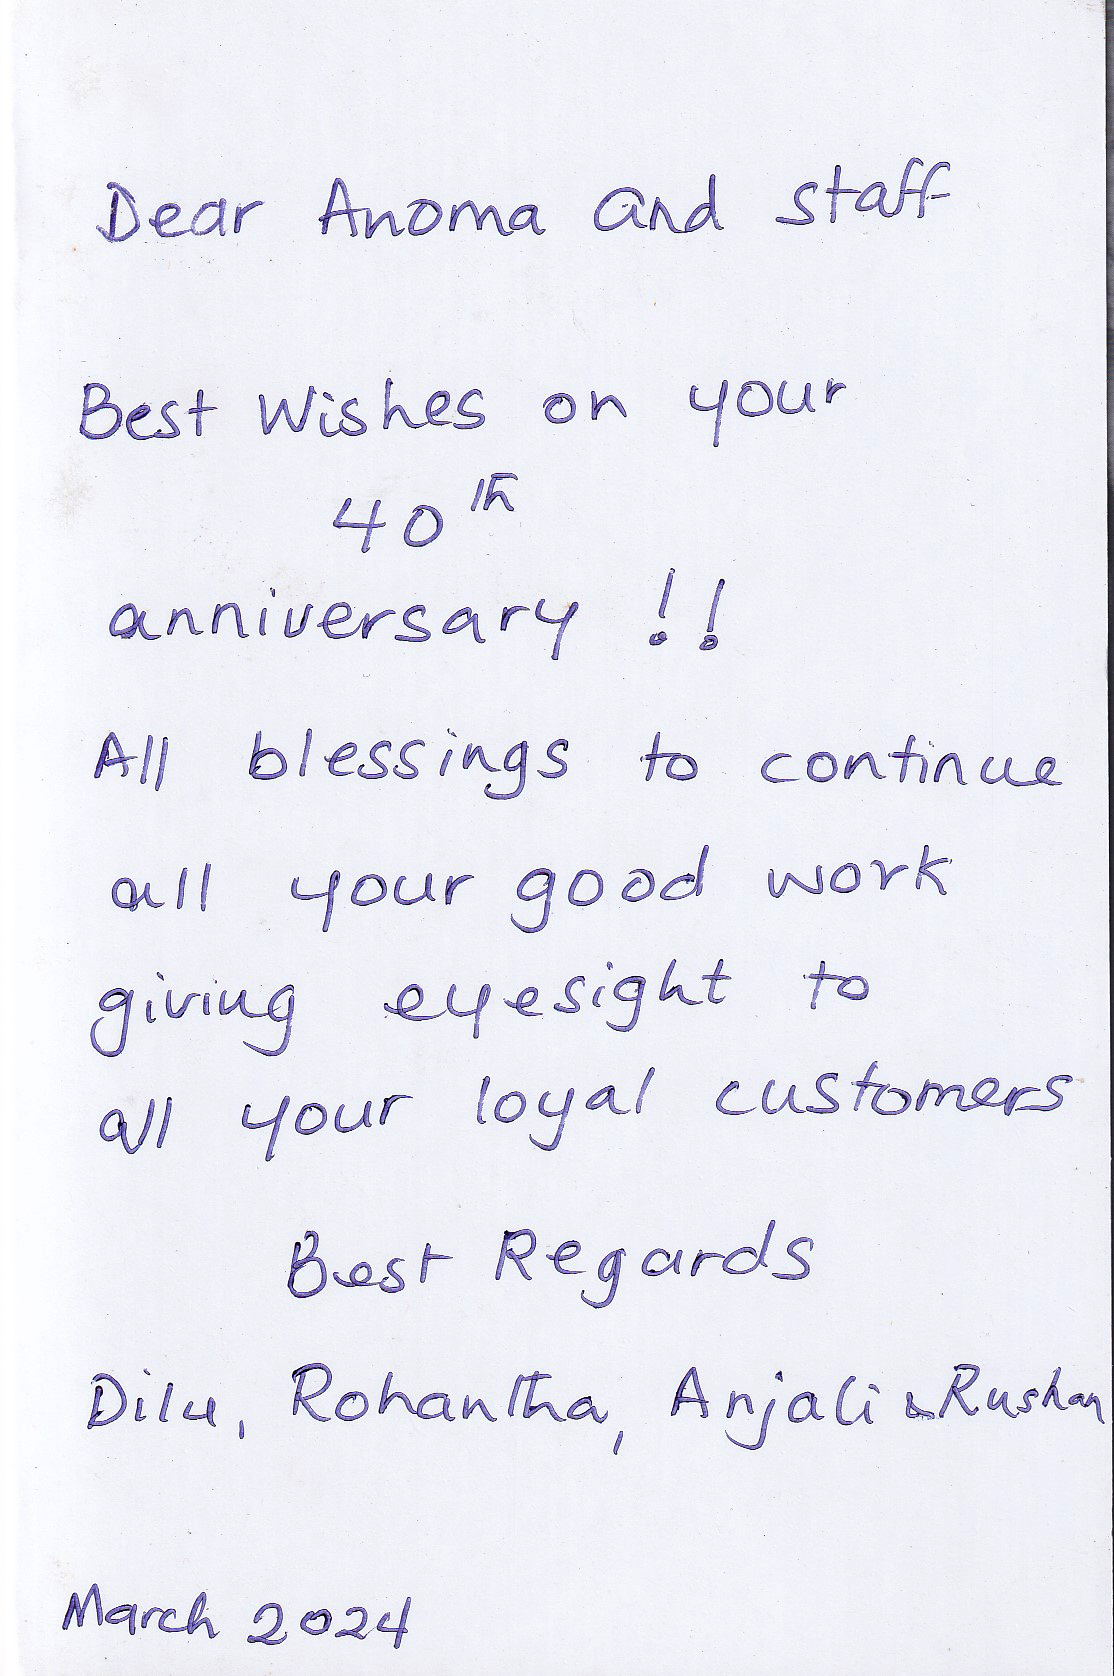 Dear Anoma and staff
Best Wishes on your
40th
anniversary !!
All blessings to continue
all your good work
giving eyesight to
all your loyal customers
Best Regards
Dilu, Rohantha, Anjali & Rushan
March 2024